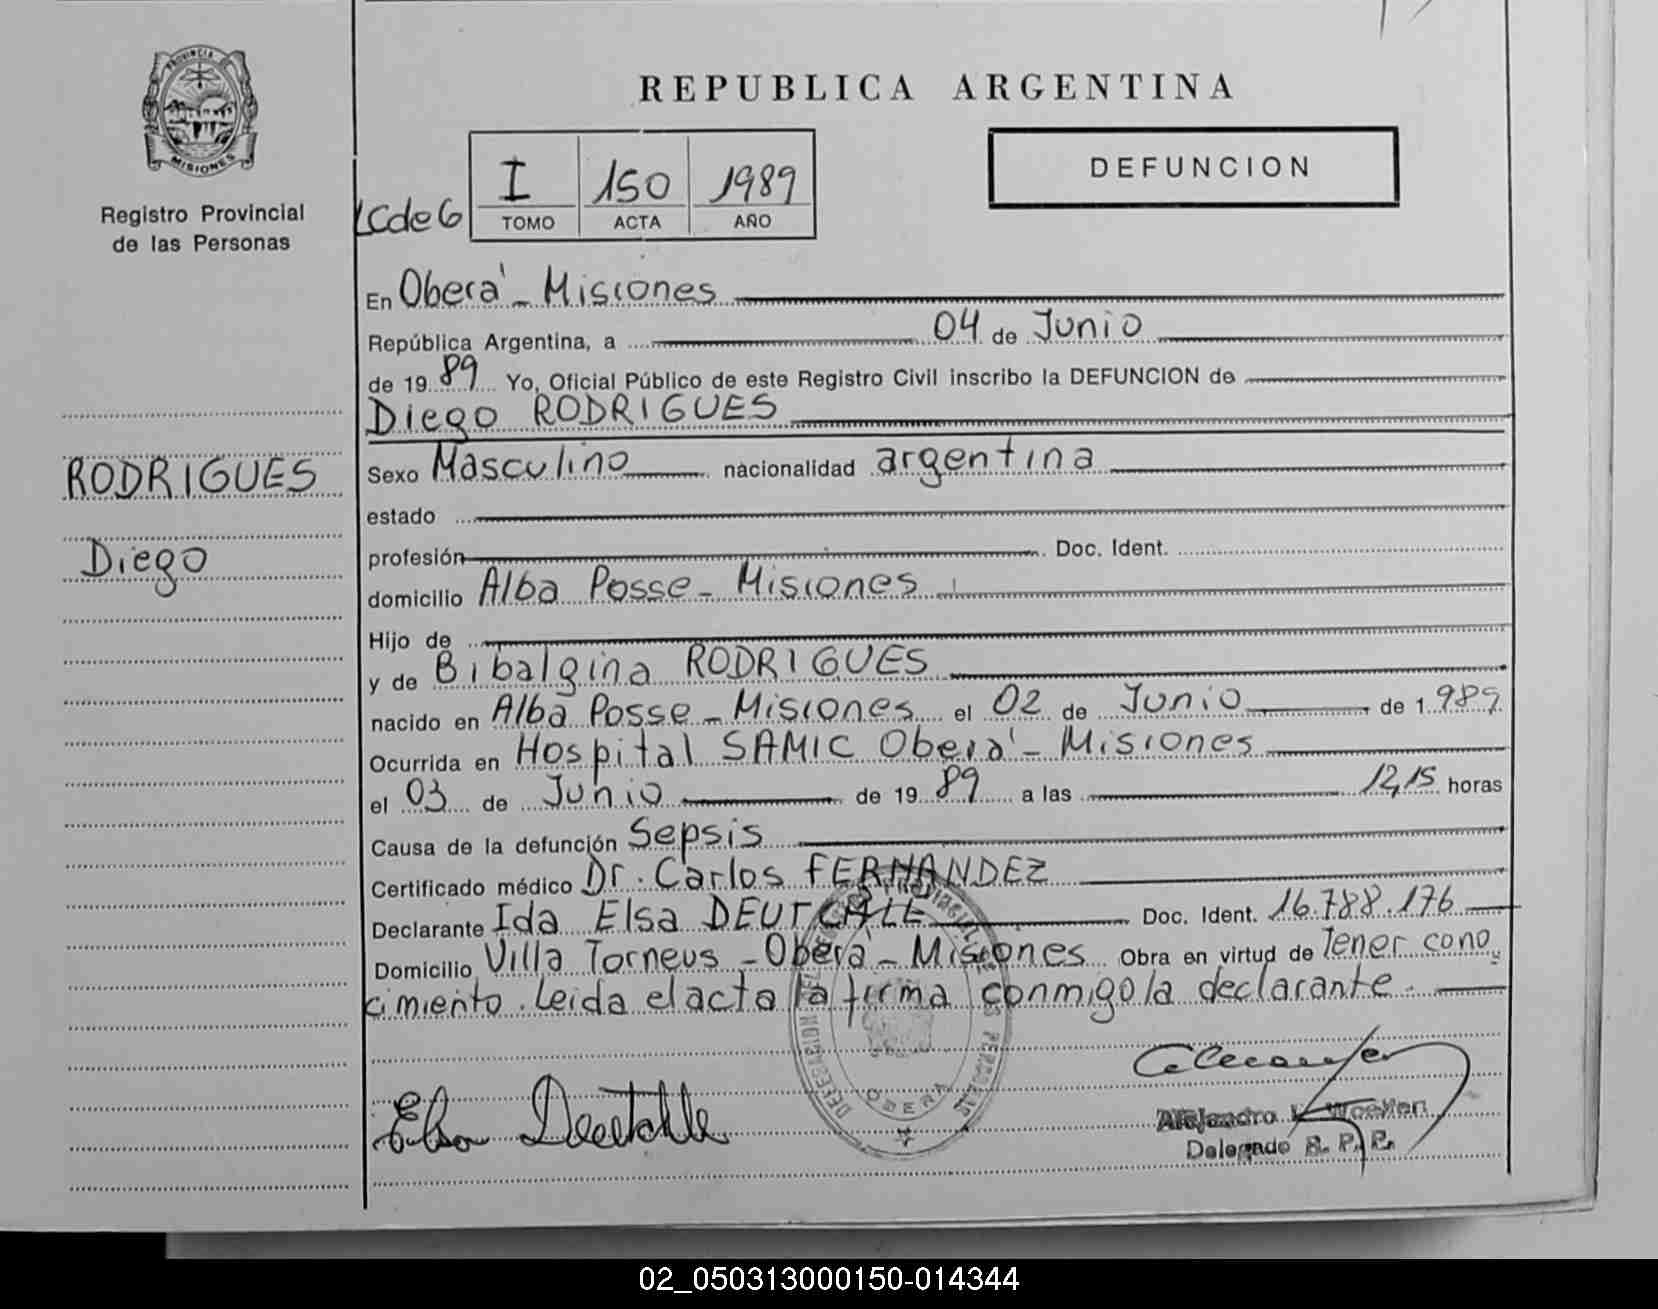 PROVINCIA
MISIONES
Registro Provincial
de las Personas
RODRIGUES
Diego
REPUBLICA ARGENTINA
LCde6
I 150 1989
TOMO ACTA AÑO
DEFUNCION
En Oberá - Misiones
República Argentina, a 04 de Junio
de 19 89 Yo, Oficial Público de este Registro Civil inscribo la DEFUNCION de
Diego RODRIGUES
Sexo Masculino nacionalidad argentina
estado
profesión Doc. Ident.
domicilio Alba Posse - Misiones
Hijo de
y de Bibalgina RODRIGUES
nacido en Alba Posse - Misiones el 02 de Junio de 1 989
Ocurrida en Hospital SAMIC Oberá - Misiones
el 03 de Junio de 19 89 a las 12,15 horas
Causa de la defunción Sepsis
Certificado médico Dr. Carlos FERNANDEZ
Declarante Ida Elsa DEUTCALLE Doc. Ident. 16.788.176
Domicilio Villa Torneus - Oberá - Misiones Obra en virtud de Tener cono
cimiento. Leida el acta la firma conmigo la declarante.
OBERA
Elsa
Alejandro
Delegado R. P. P.
02_050313000150-014344